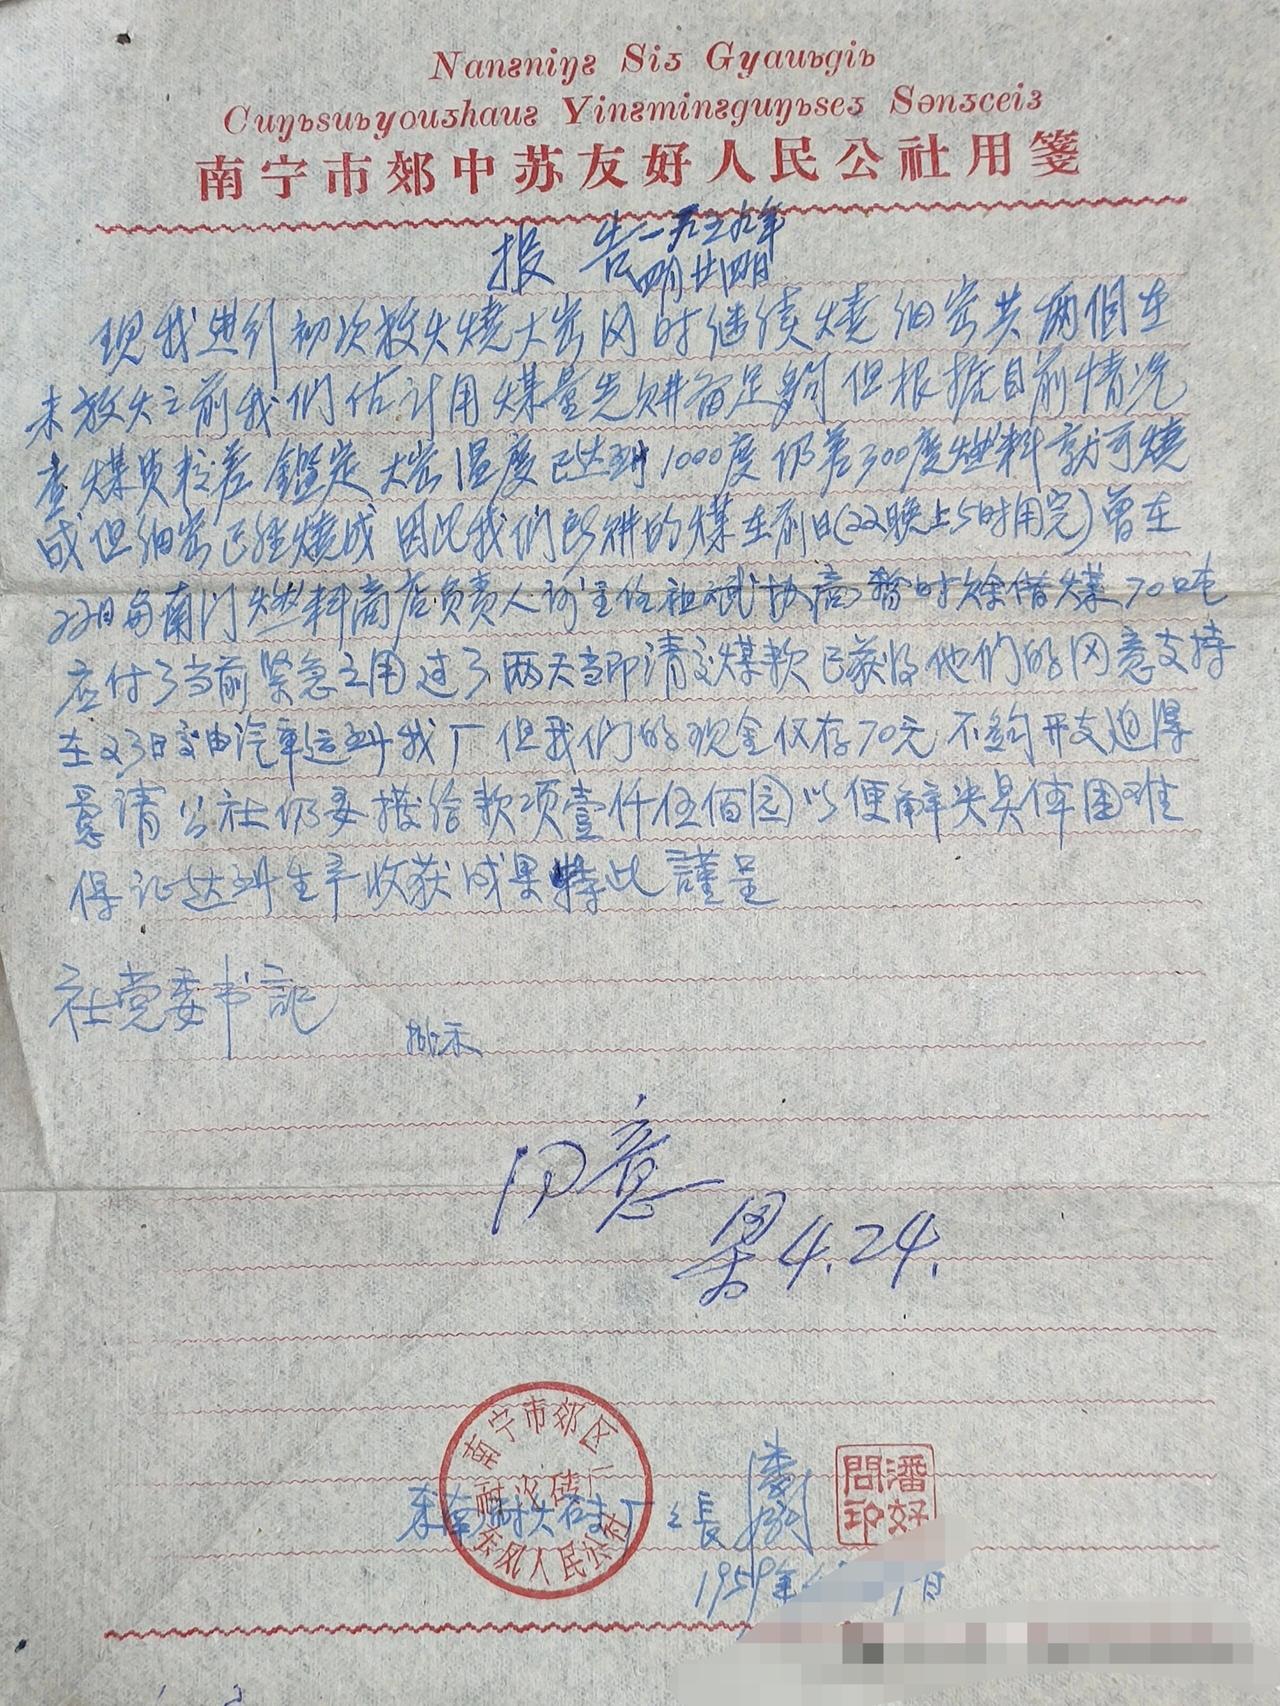 Nanƨniŋƨ Siɜ Gyauƅgiƅ
Cuŋƅsuƅyouɜhauƨ Yinƨminƨguŋƅseɜ Sənɜceiɜ
南宁市郊中苏友好人民公社用箋
报 告 一九五九年
四月廿四日
现我进行初次放火燒大窑同时继续燒细窑共两個在
未放火之前我们估计用煤量先购备足夠但根据目前情况
查煤质较差鑑定大窑温度已达到1000度仍差300度燃料就可燒
成但细窑已经燒成因此我们所购的煤在前日(22晚上5时用完)曾在
22日与南门燃料商店负责人 祖斌协商暂时赊借煤70吨
应付了当前紧急之用过了两天当即清交煤款已获得他们的同意支持
在23日交由汽車运到我厂但我们的现金仅存70元不夠开支迫得
恳请公社仍要撥给款项壹仟伍佰园以便解决具体困难
保证达到生产收获成果特此謹呈
社党委书記
批示
同意
梁 4.24.
南宁市郊区
耐火砖厂
东风人民公社
东南耐火砖厂 長 潘
潘好問印
1959年 日